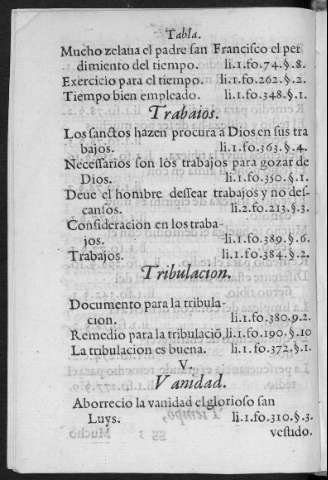 Tabla.
Mucho zelaua el padre san Francisco el per
dimiento del tiempo. li.1.fo.74.§.8.
Exercicio para el tiempo. li.1.fo.262.§.2.
Tiempo bien empleado. li.1.fo.348.§.1.
Trabaios.
Los sanctos hazen procura a Dios en sus tra
bajos. li.1.fo.363.§.4.
Necessarios son los trabajos para gozar de
Dios. li.1.fo.350.§.1.
Deue el hombre dessear trabajos y no des-
cansos. li.2.fo.213.§.3.
Consideracion en los traba-
jos. li.1.fo.389.§.6.
Trabajos. li.1.fo.384.§.2.
Tribulacion.
Documento para la tribula-
cion. li.1.fo.380.9.2.
Remedio para la tribulaciō, li.1.fo.190.§.10
La tribulacion es buena. li.1.fo.372.§.1.
V.
Vanidad.
Aborrecio la vanidad el glorioso san
Luys. li.1.fo.310.§.3.
vestido.